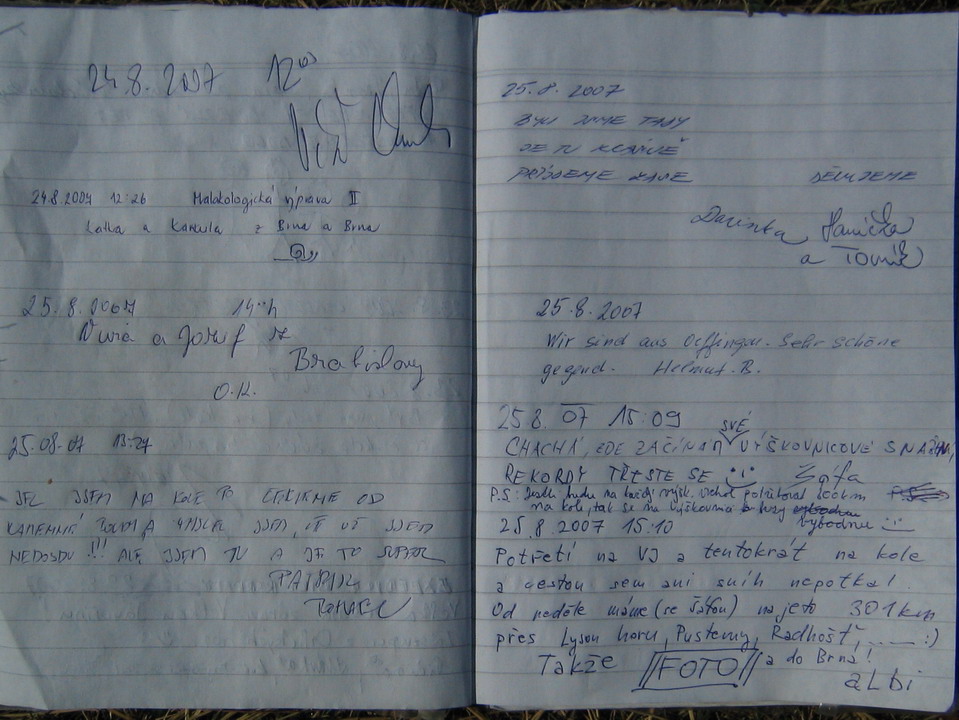 24.8.2007 12⁰⁰
24.8.2007 12:26 Malakologická výprava II
Katka a z Brna a Brna
25.8.2007 14⁰⁰h
a Jozef z
Bratislavy
O.K.
25.08.07 13:27
JEL JSEM NA KOLE PO OD
KAMENNÉ A MYSLEL JSEM, ŽE UŽ JSEM
NEDOJEDU !!! ALE JSEM TU A JE TO SUPER
25.8.2007
BYLI JSME TADY
JE TU KRÁSNĚ
PŘIJDEME ZASE DĚKUJEME
Darinka, Hanička
a Tomík
25.8.2007
Wir sind aus Oeffingen. Sehr schöne
gegend. Helmut. B.
25.8. 07 15:09
SVÉ
CHACHÁ, ZDE ZAČÍNÁM VÝŠKOVNICOVÉ SNAŽENÍ,
REKORDY TŘESTE SE :-) Šáfa
P.S: Jestli budu na každý výšk. vrchol potřebovat 100km
na kole, tak se na výškovnice brzy
vybodnu :-)
25.8.2007 15:10
Potřetí na VJ a tentokrát na kole
a cestou sem ani sníh nepotkal!
Od neděle máme (se Šáfou) najeto 301km
přes Lysou horu, Pustevny, Radhošť, ..... :)
Takže FOTO a do Brna!
aLbi